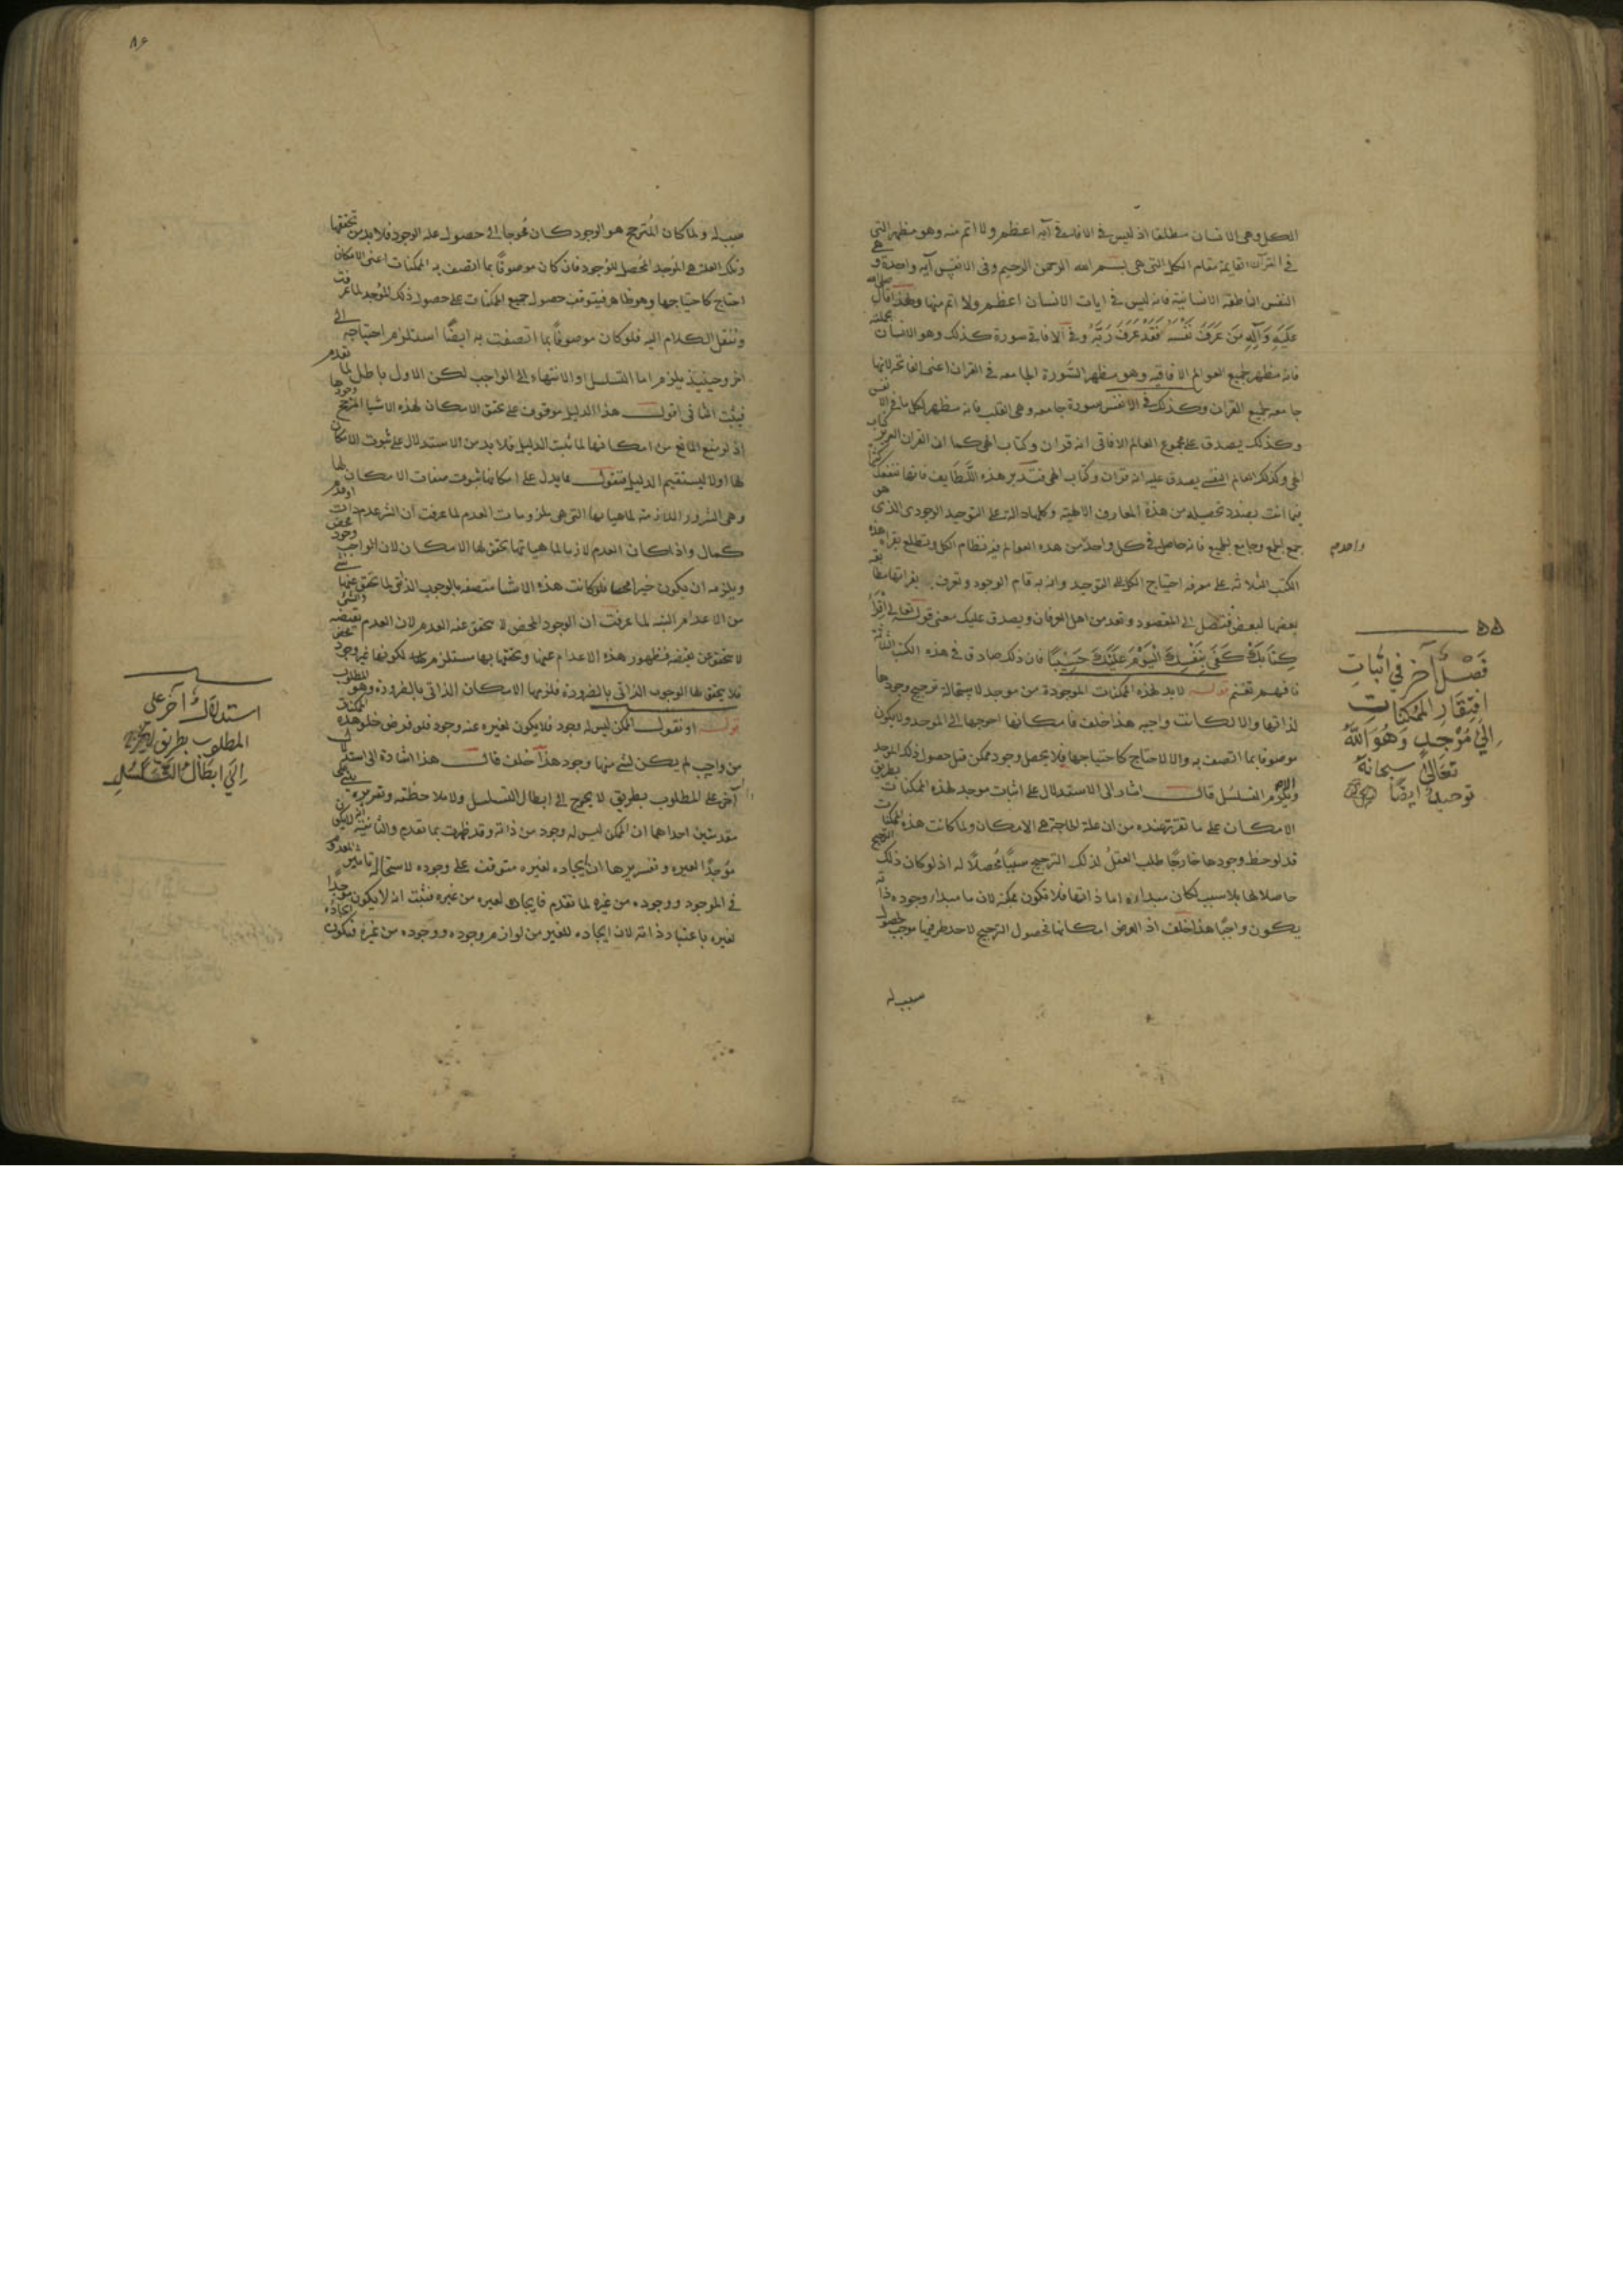 الكل وهى الانسان مطلقا اذ ليس فى الافاق آية اعظم ولا اتم منه وهو مظهر التى هى
فى القرآن القايمة مقام الكل التى هى بسم الله الرحمن الرحيم وفى الانفس آية واحدة و
النفس الناطقة الانسانية فانه ليس فى ايات الانسان اعظم ولا اتم منها ولهذا قال صلى الله
عليه وآله من عرف نفسه فقد عرف ربه وفى الافاق سورة كذلك وهو الانسان بجملته
فانه مظهر لجميع العوالم الافاقيه وهو مظهر السورة الجامعه فى القران اعنى الفاتحة لانها
جامعه لجميع القران وكذلك فى الانفس سورة جامعه وهى القلب فانه مظهر لكل ما فى الانفس
وكذلك يصدق على مجموع العالم الافاقى انه قران وكتاب الهى كما ان القران العزيز كتاب
الهى وكذلك العالم النفسى يصدق عليه انه قران وكتاب الهى فتدبر هذه اللطايف فانها تنفعك
فيما انت بصدد تحصيله من هذه المعارف الالهية وكلها دالة على التوحيد الوجودى الذى هو
جمع الجمع وجامع الجميع فانه حاصل فى كل واحد من هذه العوالم فيه نظام الكل وتطلع بقراءة هذه
الكتب الثلاثه على معرفه احتياج الكل الى التوحيد وانه به قام الوجود وتعرف بقراتها مطابقه
بعضها لبعض فتصل الى المقصود وتعد من اهل العرفان ويصدق عليك معنى قوله تعالى اقرأ
كتابك كفى بنفسك اليوم عليك حسيبا فان ذلك صادق فى هذه الكتب الثلاثة
فافهم تغتنم قوله لابد لهذه الممكنات الموجودة من موجد لاستحالة ترجيح وجودها
لذاتها والا لكانت واجبه هذا خلف فامكانها احوجها الى الموجد ولا يكون
موصوفا بما اتصفت به والا لاحتاج كاحتياجها فلا يحصل وجود ممكن قبل حصول ذلك الموجد
ويلزم التسلسل قال اشار الى الاستدلال على اثبات موجد لهذه الممكنات بطريق
الامكان على ما تقرر عنده من ان علة الحاجة هى الامكان ولما كانت هذه الممكنات
قد لوحظ وجودها خارجا طلب العقل لذلك الترجيح سببا محصلا له اذ لو كان ذلك الترجيح
حاصلا لها بلا سبب لكان مبداءه اما ذاتها فلا تكون ممكنة لان ما مبدا وجوده ذاته
يكون واجبا هذا خلف اذ الفرض امكانها فحصول الترجيح لاحد طرفيها موجب لحصول
سبب له
واحد م
فصل آخر في اثبات
افتقار الممكنات
الى موجد وهو الله
تعالى سبحانه
توحيد ايضا
٨٦
سبب له ولما كان المترجح هو الوجود كان محوجا الى حصول علة الوجود فلابد من تحققها
وتلك العلة هى الموجد المحصل للوجود فان كان موصوفا بما اتصف به الممكنات اعنى الامكان
احتاج كاحتياجها وهو ظاهر فيتوقف حصول جميع الممكنات على حصول ذلك الموجد لما عرفت
وننقل الكلام اليه فلو كان موصوفا بما اتصفت به ايضا استلزم احتياجه الى
آخر وحينئذ يلزم اما التسلسل او الانتهاء الى الواجب لكن الاول باطل لما تقدم
فيثبت الثانى اقول هذا الدليل موقوف على تحقق الامكان لهذه الاشيا المترجح وجودها
اذ لو منع المانع من امكانها لما ثبت الدليل فلابد من الاستدلال على ثبوت الامكان
لها اولا ليستقيم الدليل فنقول مما يدل على امكانها ثبوت صفات الامكان لها
وهى الشرور اللازمة لماهياتها التى هى ملزومات العدم لما عرفت ان الشر عدم ذات او عدم
كمال واذا كان العدم لازما لماهياتها تحقق لها الامكان لان الواجب وجود محض
ويلزمه ان يكون خيرا محضا فلو كانت هذه الاشيا متصفه بالوجوب الذاتى لما تحقق عنها شى
من الاعدام البته لما عرفت ان الوجود المحض لا يتحقق عنه العدم لان العدم نقيضه والشى
لا يتحقق عن نقيضه فظهور هذه الاعدام عنها وتحققها بها مستلزم لكونها غير وجود محض
فلا يتحقق لها الوجوب الذاتى بالضرورة فلزمها الامكان الذاتى بالضرورة وهو المطلوب
قوله او نقول الممكن ليس له وجود فلا يكون لغيره عنه وجود فلو فرض خلو هذه الممكنات
من واجب لم يكن لشئ منها وجود هذا خلف قال هذا اشارة الى استدلال
آخر على المطلوب بطريق لا يحوج الى ابطال التسلسل ولا ملاحظته وتقريره
مقدمتين احداهما ان الممكن ليس له وجود من ذاته وقد ظهرت بما تقدم والثانية انه لا يكون
موجدا لغيره وتقريرها ان ايجاده لغيره متوقف على وجوده لاستحالة تاثير المعدوم
فى الموجود ووجوده من غيره لما تقدم فايجاده لغيره من غيره فثبت انه لا يكون موجدا
لغيره باعتبار ذاته لان ايجاده للغير من لوازم وجوده ووجوده من غيره فيكون ايجاده
استدلال آخر على
المطلوب بطريق
الى ابطال التسلسل